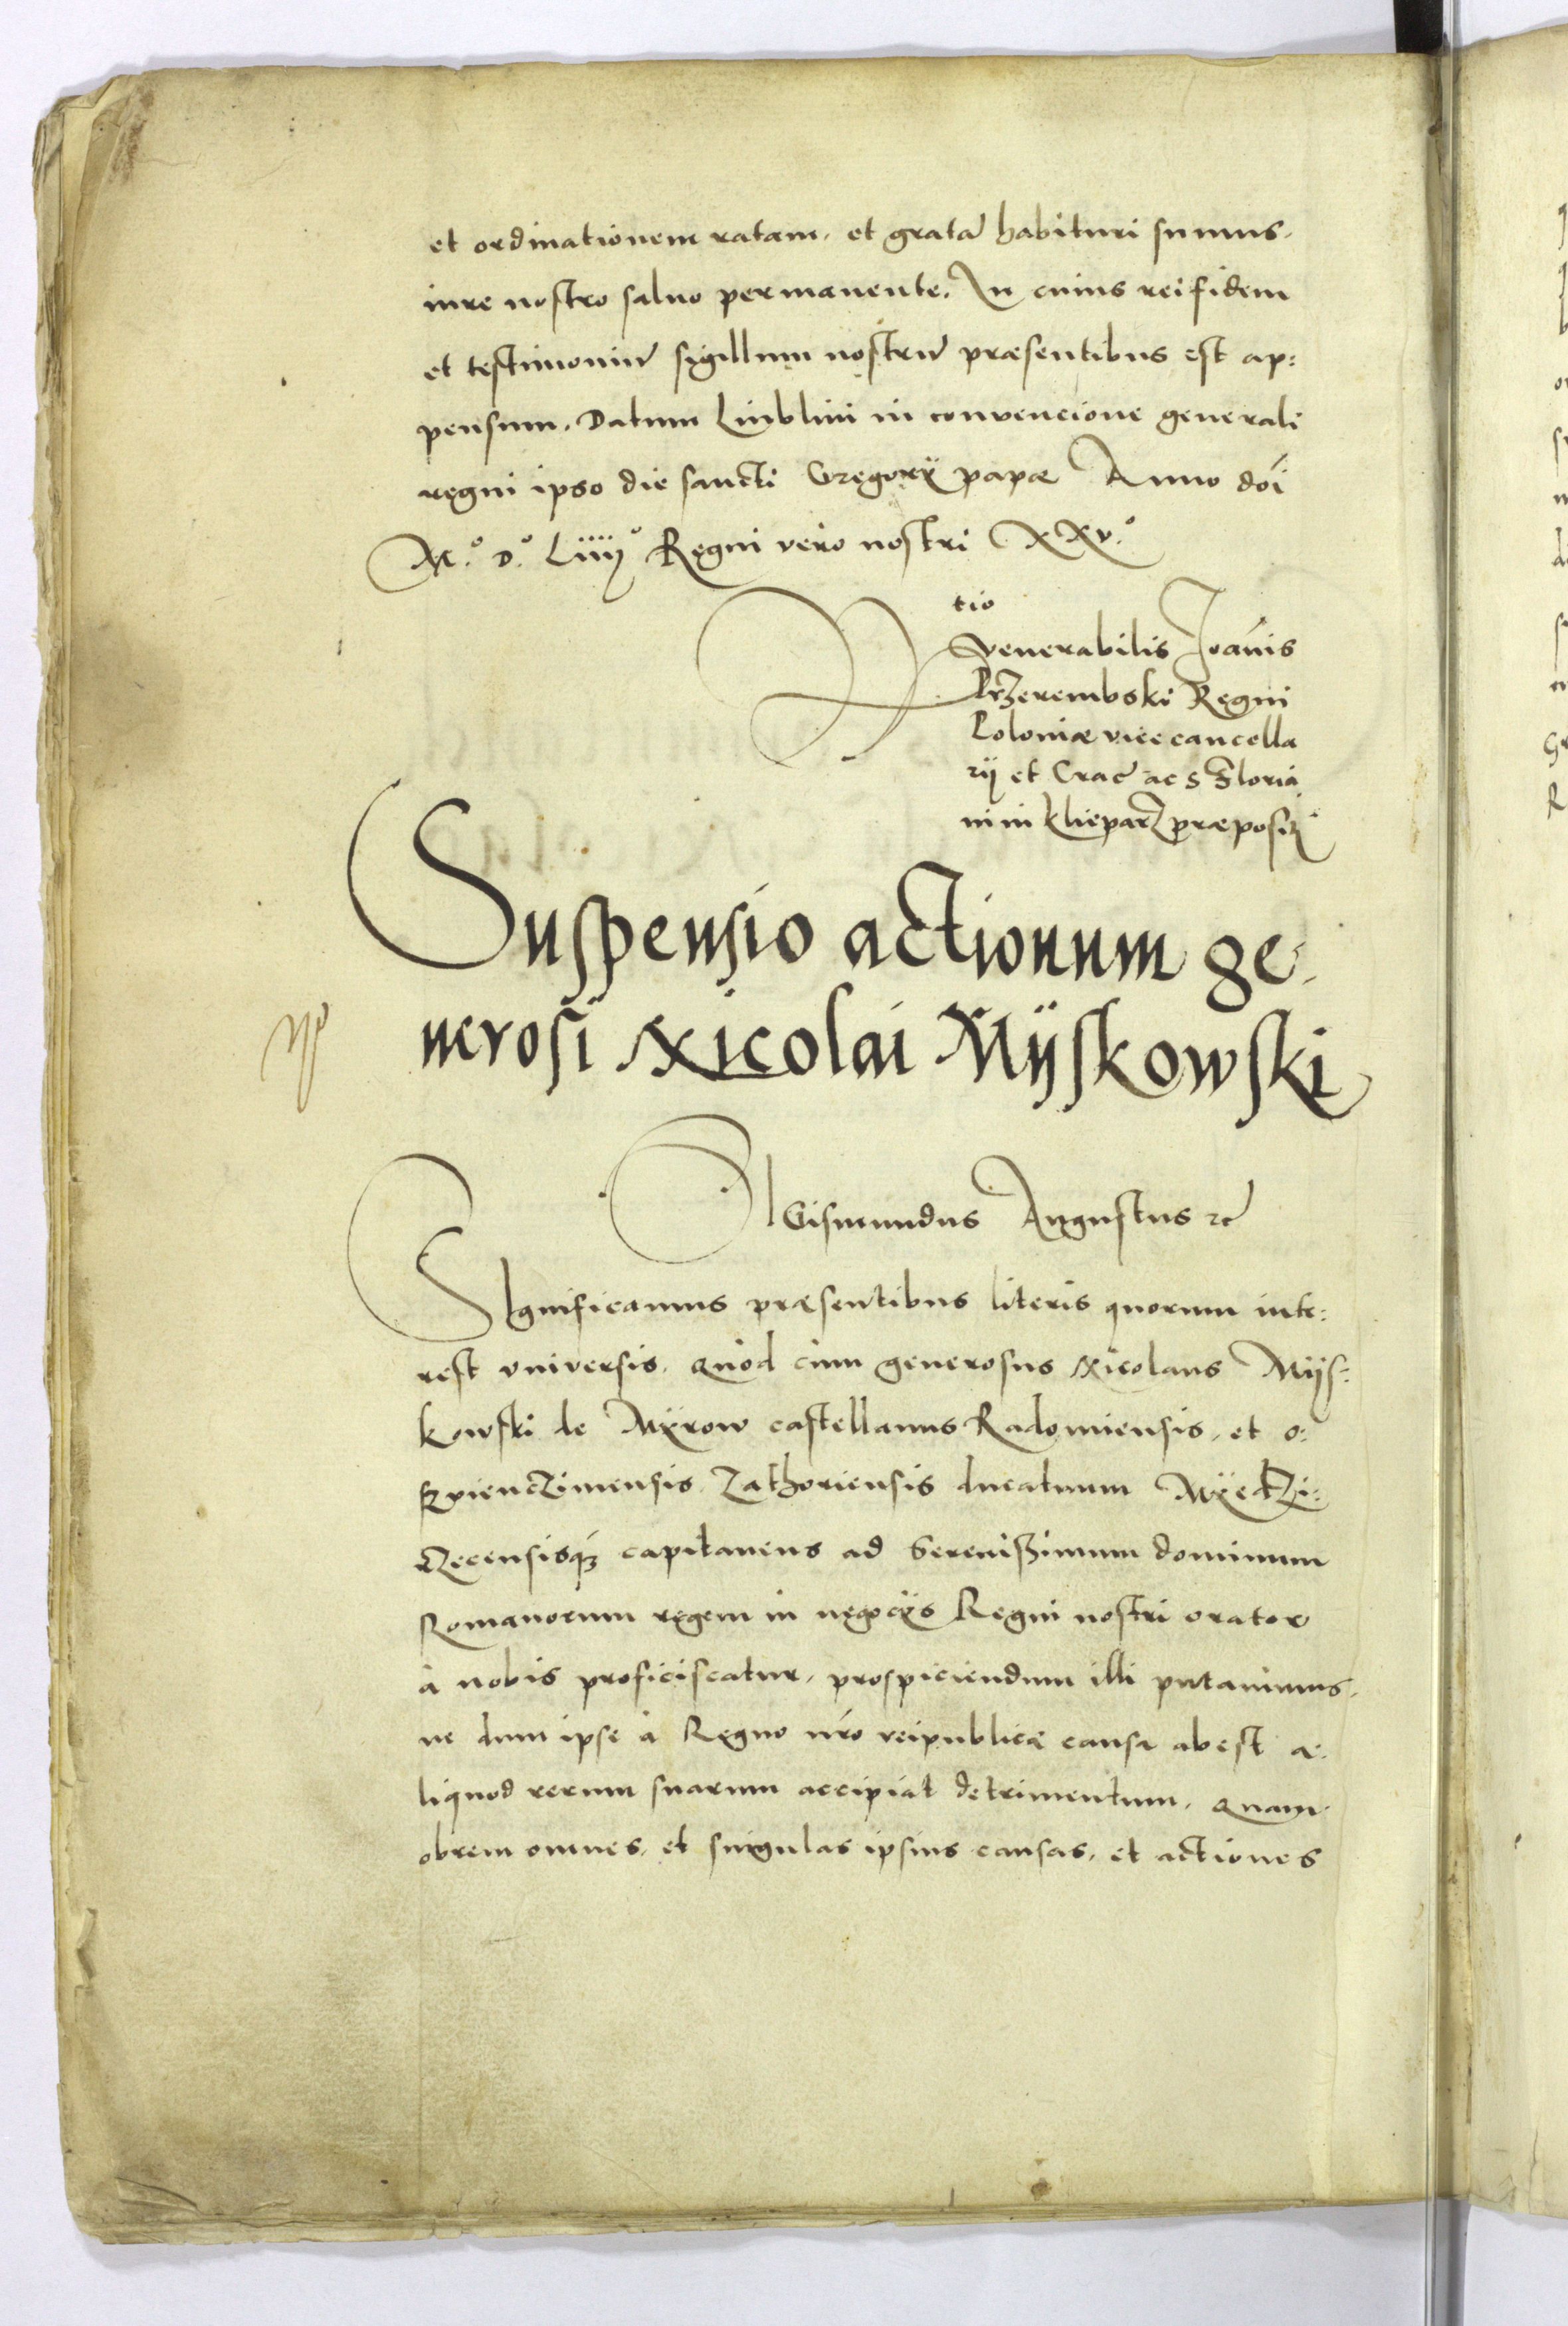 et ordinationem ratam, et gratā habituri sumus,
iure nostro saluo permanente. In cuius rei fidem
et testimoniū sigillum nostrū præsentibus est ap:
pensum. Datum Liublini in convencione generali
regni ipso die sancti Gregorÿ papæ Anno doī
M.º D.º Liiijº Regni vero nostri XXV.º
tio
Rvenerabilis Joānis
Przerembski Regni
Poloniæ vicecancella
rij et Crac̄ ac S Floria
ni in Klieparz præpositj
Suspensio actionum ge:
nerosi Nicolai Mÿskowski
SIGismundus Augustus zc
SIgnificamus præsentibus literis quorum inte:
rest universis, Quod cùm generosus Nicolaus Mÿs:
kowski de Mÿrow castellanus Radomiensis, et O:
szvienczimensis Zathoriensis ducatuum Mÿedzi:
rzecensisqȝ capitaneus ad Serenißimum dominum
Romanorum regem in negocÿs Regni nostri orator
à nobis proficiscatur, prospiciendum illi putauimus,
ne dum ipse à Regno nr̄o reipublicæ causa abest a:
liquod rerum suarum accipiat detrimentum. Quam
obrem omnes, et singulas ipsius causas, et actiones